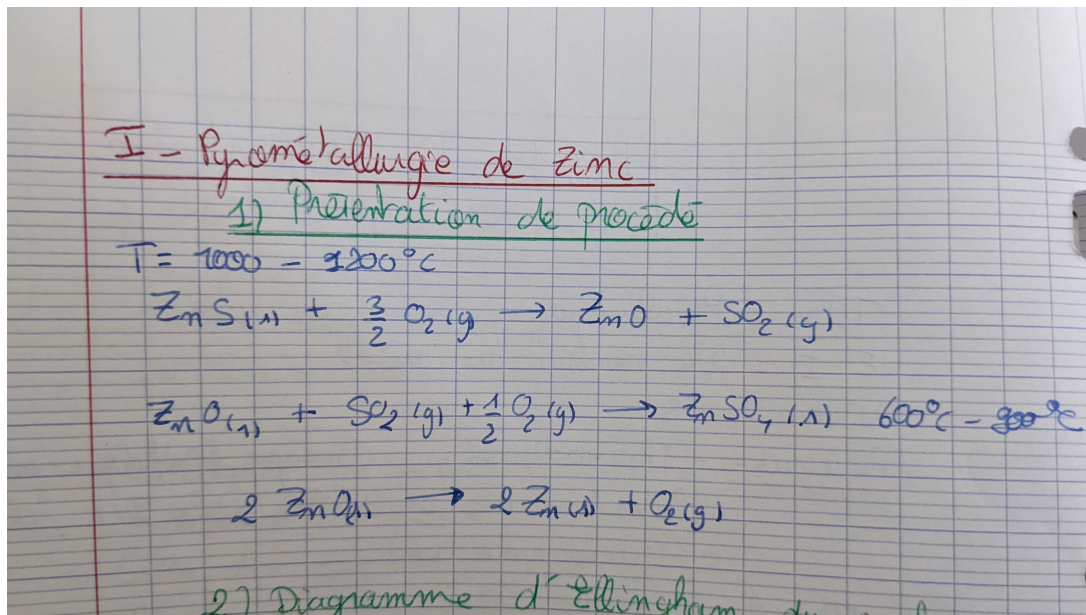 I - Pyrométallurgie de Zinc
1) Présentation de procédé
T = 1000 - 1200°C
ZnS(s) + 3/2 O2(g) → ZnO + SO2(g)
ZnO(s) + SO2(g) + 1/2 O2(g) → ZnSO4(s) 600°C - 900°C
2 ZnO(s) → 2 Zn(s) + O2(g)
2) Diagramme d'Ellingham